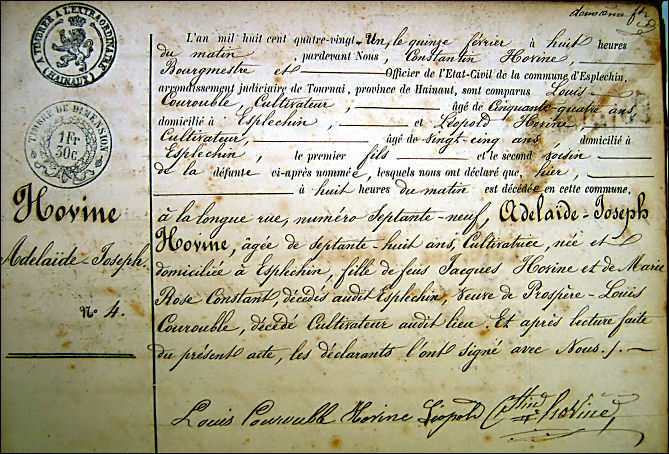 A TIMBRER A L'EXTRAORDINAIRE
(HAINAUT)
TIMBRE DE DIMENSION
1 Fr
50 c.
L'an mil huit cent quatre-vingt-Un, le quinze février à huit heures
du matin, pardevant Nous, Constantin Hovine,
Bourgmestre et Officier de l'Etat-Civil de la commune d'Esplechin,
arrondissement judiciaire de Tournai, province de Hainaut, sont comparus Louis
Courouble, Cultivateur, âgé de Cinquante-quatre ans,
domicilié à Esplechin, et Léopold Hovine,
Cultivateur, âgé de vingt-cinq ans, domicilié à
Esplechin, le premier fils et le second voisin
de la défunte ci-après nommée, lesquels nous ont déclaré que, hier,
à huit heures du matin est décédée en cette commune,
à la longue rue, numéro Septante-neuf, Adelaïde-Joseph
Hovine, âgée de Septante-huit ans, Cultivatrice, née et
domiciliée à Esplechin, fille de feus Jacques Hovine et de Marie
Rose Constant, décédés audit Esplechin, Veuve de Prospère-Louis
Courouble, décédé Cultivateur audit lieu. Et après lecture faite
du présent acte, les déclarants l'ont signé avec Nous./.
Hovine
Adelaïde-Joseph
N° 4.
Louis Courouble Hovine Léopold Cttin Hovine